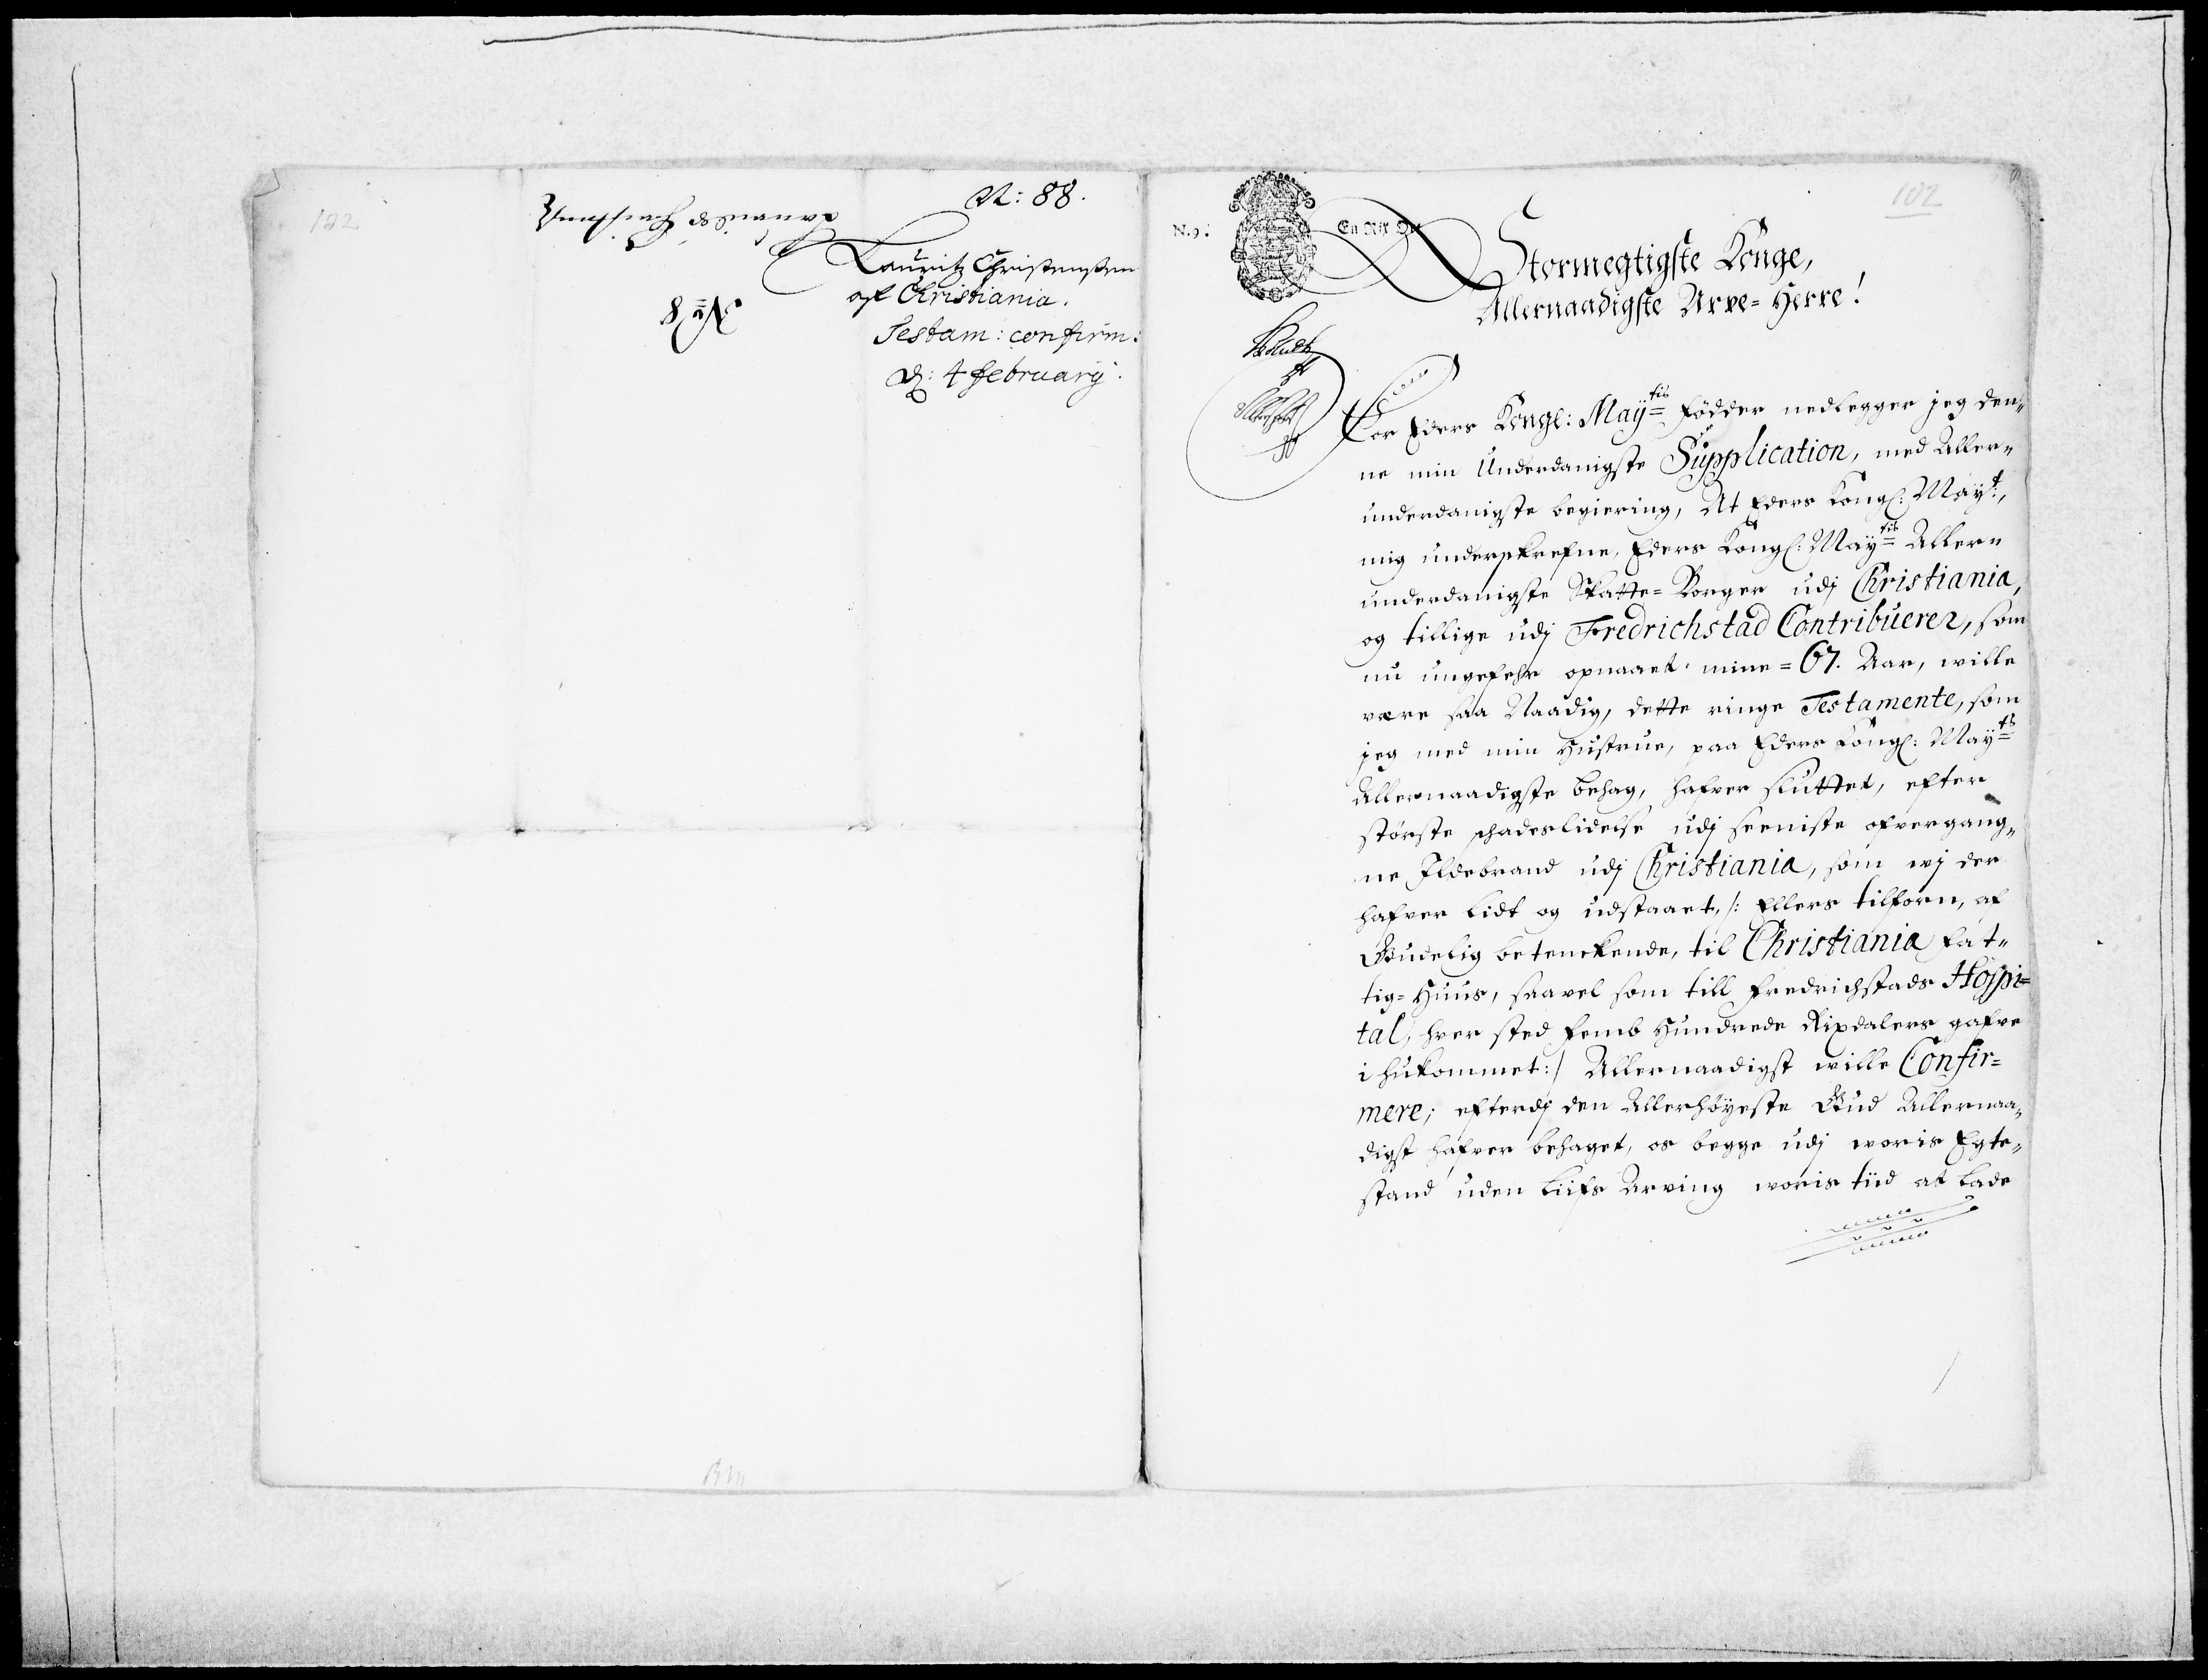 102
N: 88.
Lauritz Christensen
af Christiania.
Testam: confirm:
d: 4 february.
102
N.9.
En Rix Ort
Stormegtigste Konge,
Allernaadigste Arve= Herre!
For Eders Kongl: Maÿtis fødder nedlegger jeg den„
ne min Underdanigste Supplication, med Aller„
underdanigste begiering, At Eders Kongl: Maÿt:,
mig underskrefne, Eders Kongl: Maÿtis Aller„
underdanigste Skatte= Borger udj Christiania,
og tillige udj Fredrichstad Contribuerer, som
nu ungefehr opnaaet mine = 67. Aar, wille
være saa Naadig, dette ringe Testamente, som
jeg med min Hustrue, paa Eders Kongl: Maÿts
Allernaadigste behag, hafver sluttet, efter
største schadeslidelse udj seeniste ofvergang„
ne Ildebrand udj Christiania, som wj der
hafver lidt og udstaaet, /: Ellers tilforn, af
Gudelig betenckende, til Christiania Fat„
tig= Huus, saavel som till Fredrichstads Hospi=
tal, hver sted femb Hundrede Rixdalers gafve
ihukommet:/ Allernaadigst wille Confir=
mere; efterdj den Allerhøÿeste Gud Allernaa„
digst hafver behaget, os begge udj woris Egte„
stand uden Liifs Arving woris tiid at lade